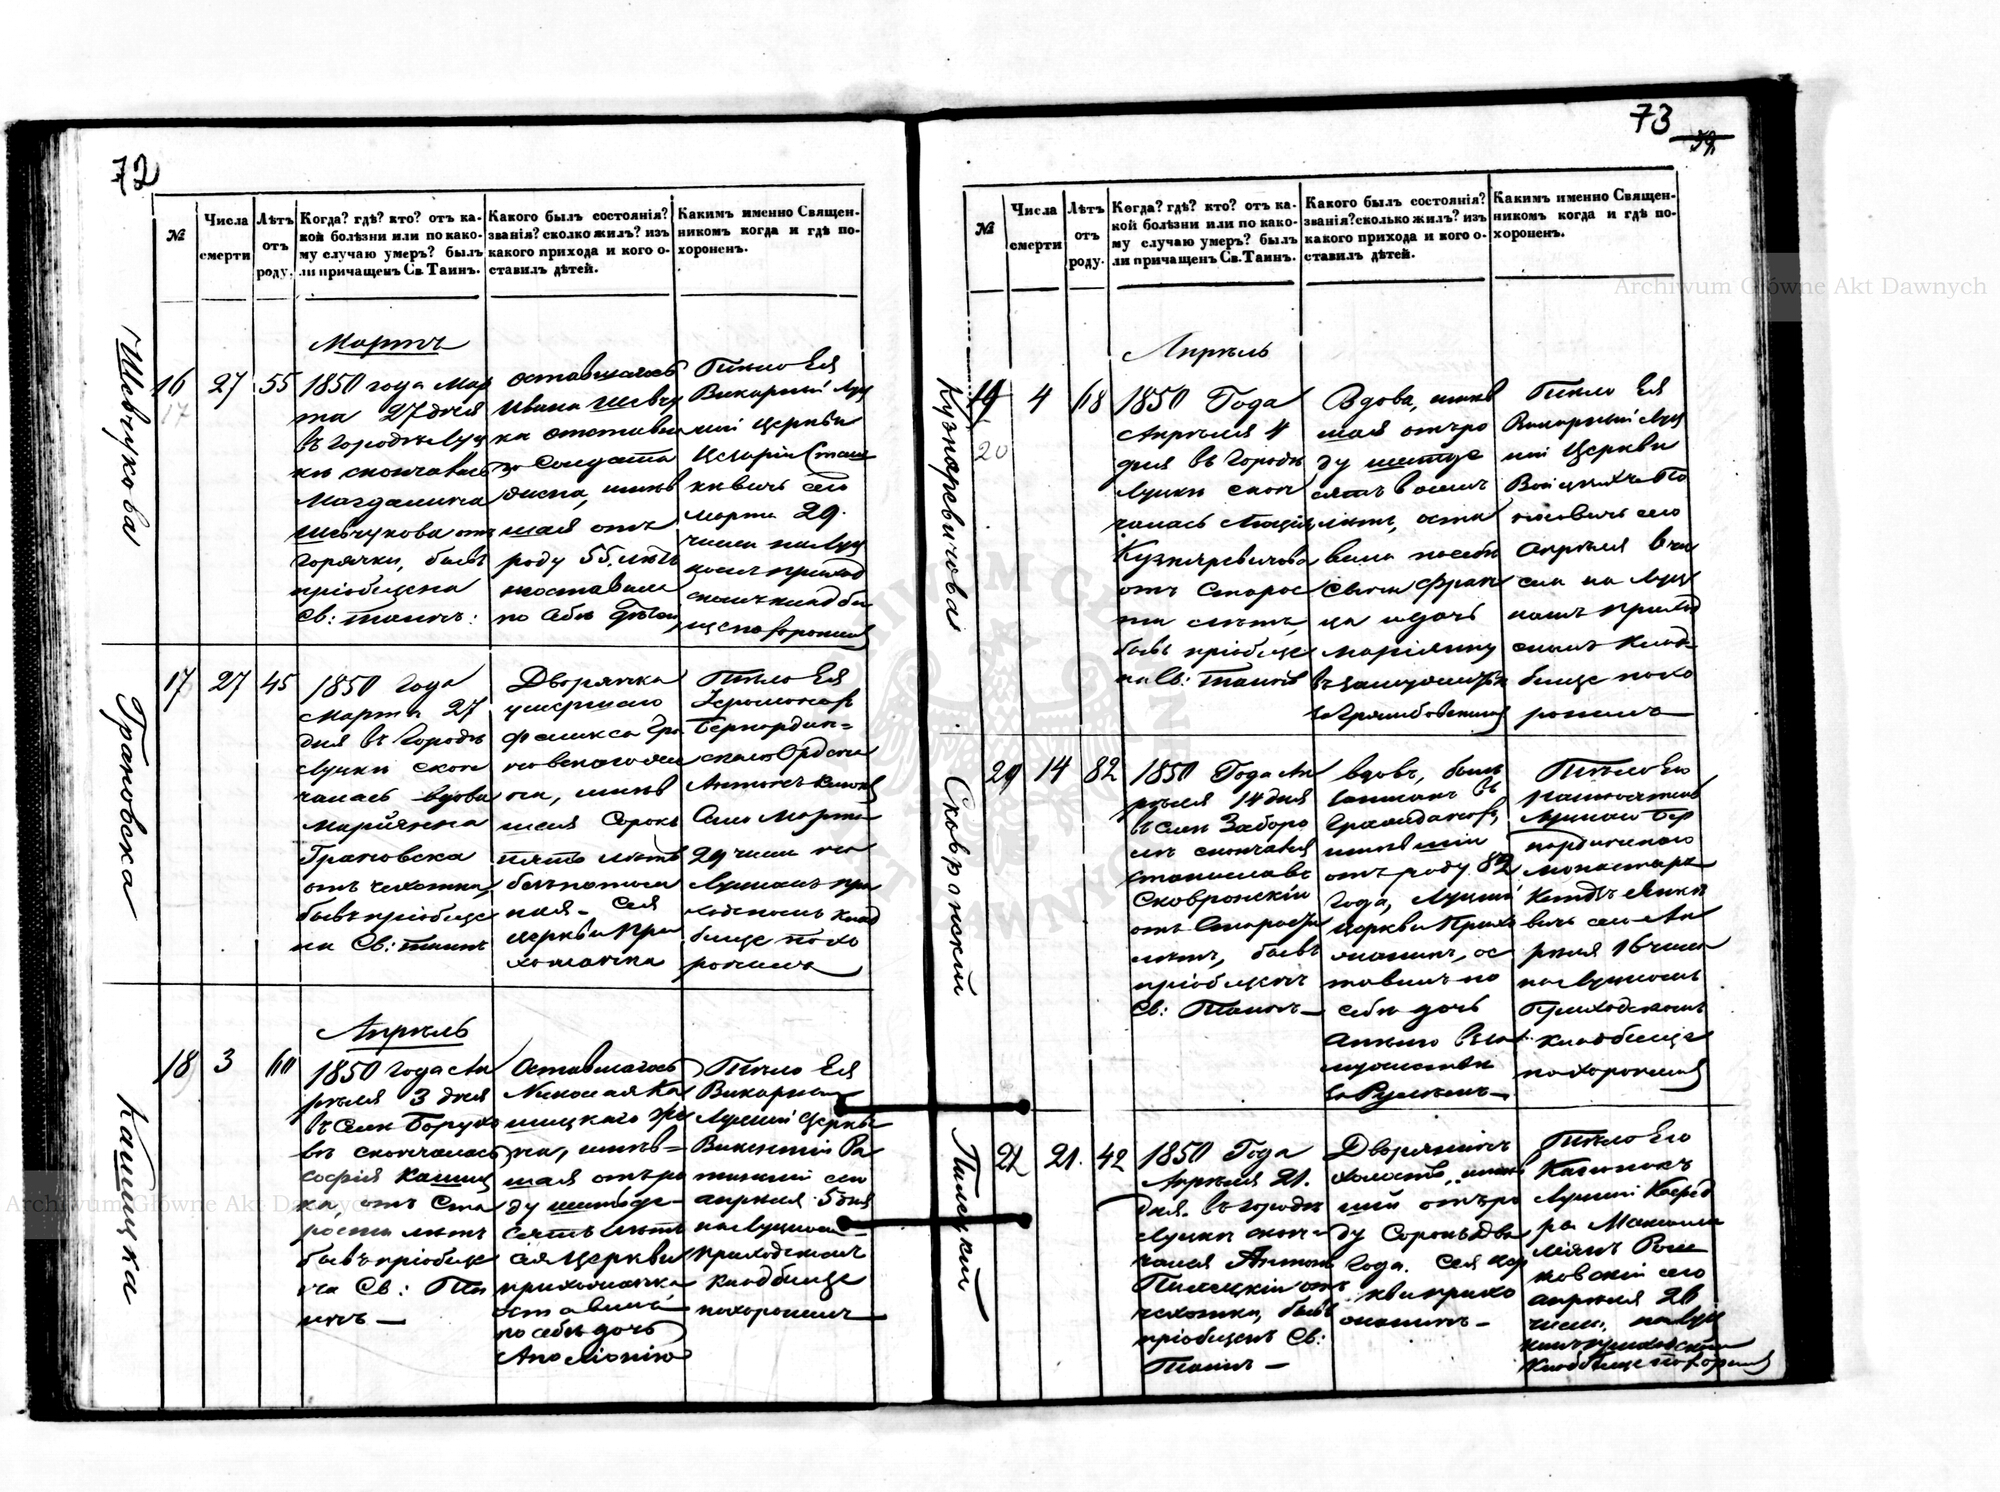 72
№
Числа смерти
Лѣтъ отъ роду.
Когда? гдѣ? кто? отъ ка-
кой болѣзни или по како-
му случаю умеръ? былъ
ли причащенъ Св. Таинъ.
Какого былъ состоянія?
званія? сколко жилъ? изъ
какого прихода и кого о-
ставилъ дѣтей.
Какимъ именно Священ-
никомъ когда и гдѣ по-
хороненъ.
Шевчукова
16
17
27
55
Мартъ
1850 года Мар
та 27 дня
въ городѣ Луц
кѣ скончалась
Магдалина
Шевчукова отъ
горячки, бывъ
пріобщена
Св: таинъ:
оставшаяся
Ивана Шевчу
ка отставна
го Солдата
имѣв
шая отъ
роду 55 лѣтъ
по себѣ
Тѣло Ея
Викарный Луц
кой Церкви
Цезарій Стан
кевичъ сего
марта 29.
числа на Луц
комъ приход
скомъ кладби
щѣ похоронилъ
Грановска
17
27
45
1850 года
Марта 27
дня въ городѣ
Луцкѣ скон
чалась вдова
Маріянна
Грановска
отъ чехотки,
бывъ пріобще
на Св: таинъ
Дворянка
умершаго
Феликса Гра
новскаго же
на, имѣв
шая Сорокъ
пять лѣтъ
безъпотом
ная. Сея
церкви при
хожанка
Тѣло Ея
Іеромонах
Бернардин-
скаго Ордена
Антонъ
Сего Марта
29 числа на
Луцкомъ при
ходскомъ клад
бище похо
ронилъ
Кашицка
18
3
60
Апрѣль
1850 года Ап
рѣля 3 дня
въ Селѣ Борухо
вѣ скончалась
Софія Кашиц
ка, отъ Ста
рости лѣтъ
бывъ пріобще
на Св: Та
инъ —
Оставшаяся
Николая Ка
шицкаго же
на, имѣв-
шая отъ ро
ду шестьде-
сятъ лѣтъ
сея Церкви
прихожанка
оставила
по себѣ дочь
Аполіонію
Тѣло Ея
Викарный
Луцкій Церкви
Викентій Ра
сего
апрѣля 5 дня
на Луцкомъ
приходскомъ
кладбище
похоронилъ
73
39.
№
Числа смерти
Лѣтъ отъ роду.
Когда? гдѣ? кто? отъ ка-
кой болѣзни или по како-
му случаю умеръ? былъ
ли причащенъ Св. Таинъ.
Какого былъ состоянія?
званія? сколько жилъ? изъ
какого прихода и кого о-
ставилъ дѣтей.
Какимъ именно Священ-
никомъ когда и гдѣ по-
хороненъ.
Кузнаревичова
19
20
4
68
Апрѣль
1850 Года
Апрѣля 4
дня въ городѣ
Луцкѣ скон
чалась
Кузнаревичова
отъ Старос
ти лѣтъ,
бывъ пріобще
на Св: Таинъ
Вдова, имѣв
шая отъ ро
ду шестде
сятъ восемь
лѣтъ, оста
вила по себѣ
сына Фран
ца и дочь
Маріянну
въ замужествѣ
за Грамбовскимъ
Тѣло Ея
Викарный Луц
кій Церкви
сего
Апрѣля 6 чи
сла на Луц
комъ приход
скомъ клад-
бище похо
ронилъ
Сковронскій
20
14
82
1850 Года Ап
рѣля 14 дня
въ Селѣ Заборо
лѣ скончался
Станиславъ
Сковронскій
отъ Старости
лѣтъ, бывъ
пріобщенъ
Св: Таинъ —
вдовъ, былъ
записанъ въ
Гражданахъ,
имѣвшій
отъ роду 82
года, Луцкій
церкви Прихо
жанинъ, ос
тавилъ по
себѣ дочь
Анною въ за
мужествѣ
за
Тѣло Его
Луцкаго Бер
нардинскаго
монастыря
сего Ап
рѣля 16 числа
на Луцкомъ
Приходскомъ
кладбище
похоронилъ
Пилецкій
21
21.
42
1850 Года
Апрѣля 21.
дня въ городѣ
Луцкѣ скон
чался Антонъ
Пилецкій отъ
чехотки, бывъ
пріобщенъ Св:
Таинъ —
Дворянинъ
холостъ, имѣв
шій отъ ро
ду Сорокъ два
года. Сея цер
кви прихо
жанинъ —
Тѣло Его
Каноникъ
Луцкій Кафед
ры Максими
ліянъ
сего
апрѣля 26
числа, на Луц
комъ приходскомъ
кладбище похоронилъ
Archiwum Główne Akt Dawnych
Archiwum Główne Akt Dawnych